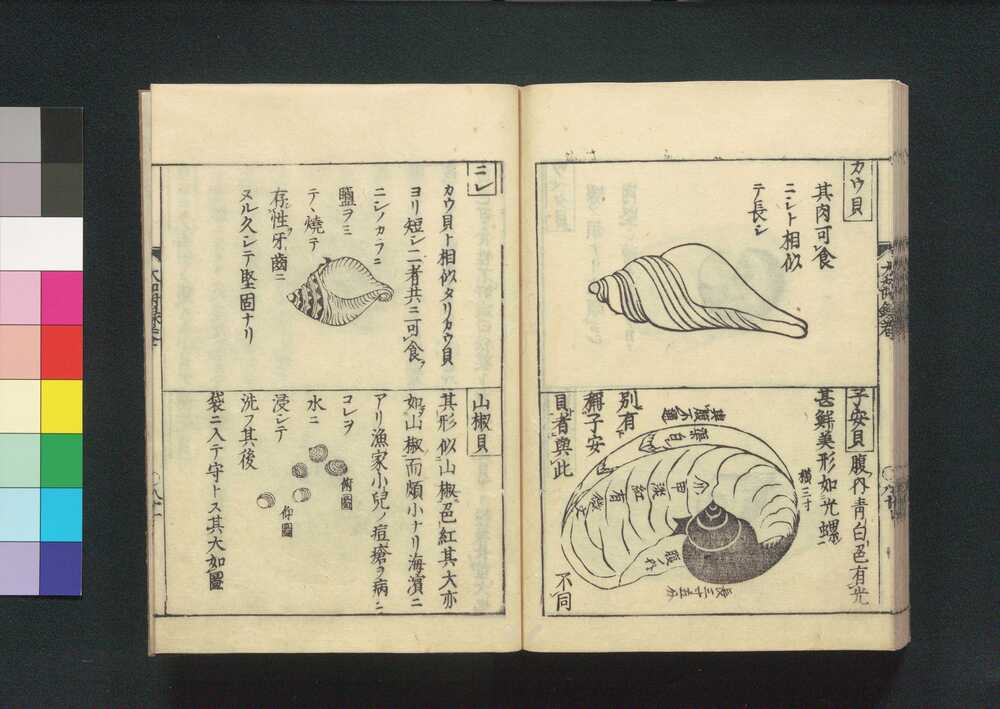 カウ貝
其肉可食
ニシト相似
テ長シ
子安貝
腹内青白色有光
甚鮮美形如光螺
横三寸
介甲淡紅
有
腹ノ
長三寸五分
別有
稱子安
貝者與此
不同
ニシ
カウ貝ト相似タリカウ貝
ヨリ短シ二者共ニ可食
ニシノカラニ
鹽ヲミ
テ、燒テ
存性牙齒ニ
ヌル久シテ堅固ナリ
山椒貝
其形似山椒色紅其大亦
如山椒而頗小ナリ海濵ニ
アリ漁家小兒ノ痘瘡ヲ病ニ
コレヲ
水ニ
浸シテ
洗フ其後
袋ニ入テ守トス其大如圖
俯圖
仰圖